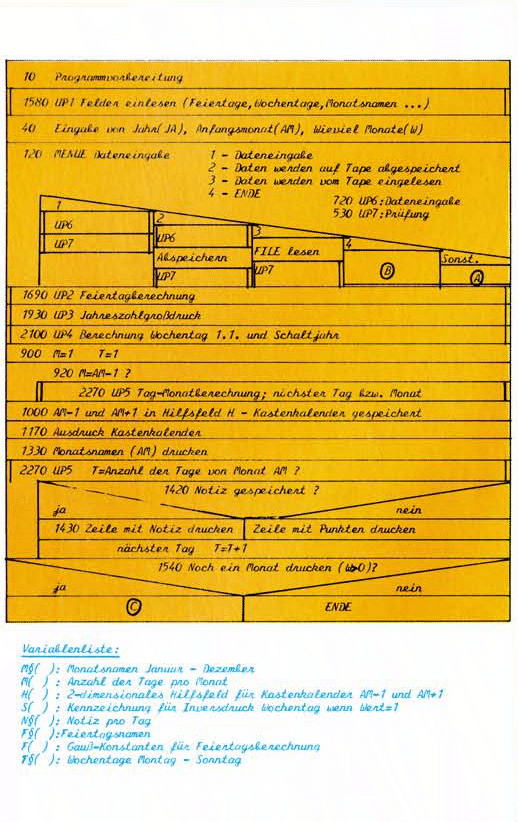 10 Programmvorbereitung
1580 UP1 Felder einlesen (Feiertage,Wochentage,Monatsnamen ...)
40 Eingabe von Jahr(JA), Anfangsmonat(AM), Wieviel Monate(W)
120 MENUE Dateneingabe 1 - Dateneingabe
2 - Daten werden auf Tape abgespeichert
3 - Daten werden vom Tape eingelesen
4 - ENDE
720 UP6:Dateneingabe
530 UP7:Prüfung
1
2
3
4
Sonst.
UP6
UP7
UP6
Abspeichern
UP7
FILE lesen
UP7
B
A
1690 UP2 Feiertagberechnung
1930 UP3 Jahreszahlgroßdruck
2100 UP4 Berechnung Wochentag 1.1. und Schaltjahr
900 M=1 T=1
920 M=AM-1 ?
2270 UP5 Tag-Monatberechnung; nächster Tag bzw. Monat
1000 AM-1 und AM+1 in Hilfsfeld H - Kastenkalender gespeichert
1170 Ausdruck Kastenkalender
1330 Monatsnamen (AM) drucken
2270 UP5 T=Anzahl der Tage von Monat AM ?
1420 Notiz gespeichert ?
ja nein
1430 Zeile mit Notiz drucken Zeile mit Punkten drucken
nächster Tag T=T+1
1540 Noch ein Monat drucken (W>0)?
ja nein
C ENDE
Variablenliste:
M§( ): Monatsnamen Januar - Dezember
M( ) : Anzahl der Tage pro Monat
H( ) : 2-dimensionales Hilfsfeld für Kastenkalender AM-1 und AM+1
S( ) : Kennzeichnung für Inversdruck Wochentag wenn Wert=1
N§( ): Notiz pro Tag
F§( ):Feiertagsnamen
F( ) : Gauß-Konstanten für Feiertagsberechnung
T§( ): Wochentage Montag - Sonntag